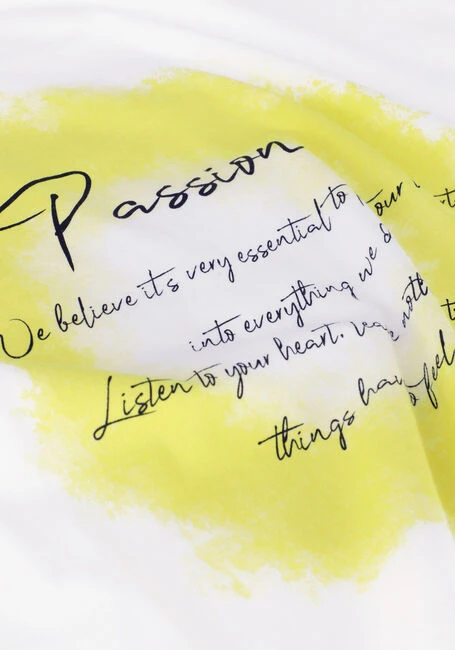 Passion
We believe it's very essential to our
into everything we d
Listen to your heart.
things hav